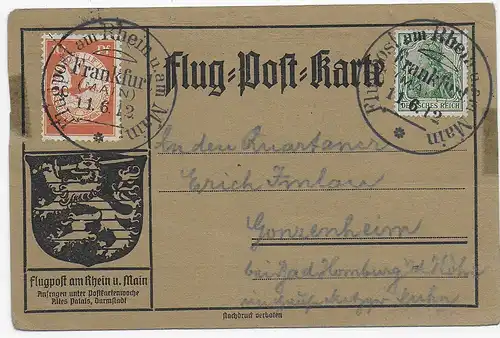 Flugpost am Rhein u. am Main
Frankfurt
(MAIN)
11.6.12
Flug-Post-Karte
Flugpost am Rhein u. am Main
Frankfurt
11.6.12
DEUTSCHES REICH
An den Quartaner
Erich
Gonzenheim
bei Bad Homburg v. d. Höhe
Flugpost am Rhein u. Main
Anfragen unter Postkartenwoche
Altes Palais, Darmstadt
Nachdruck verboten